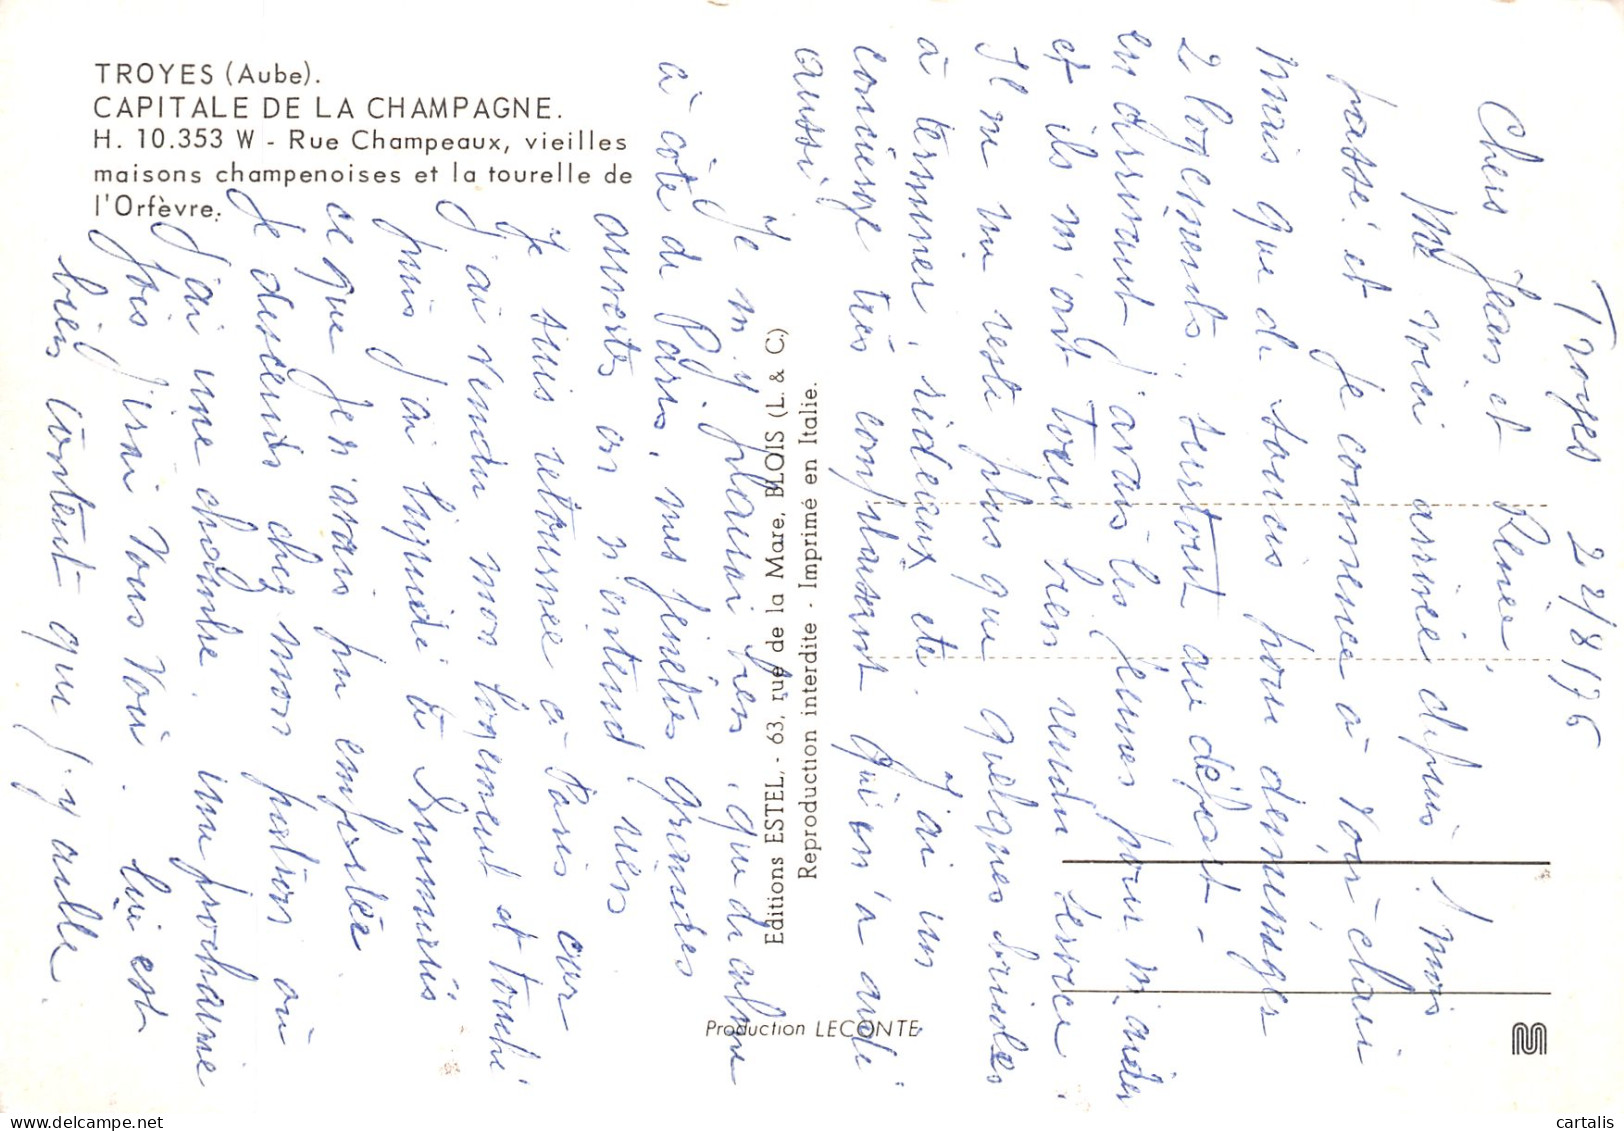 TROYES (Aube).
CAPITALE DE LA CHAMPAGNE.
H. 10.353 W - Rue Champeaux, vieilles
maisons champenoises et la tourelle de
l'Orfèvre.
Editions ESTEL, - 63, rue de la Mare, BLOIS (L. & C.)
Reproduction interdite - Imprimé en Italie.
Production LECONTE
Troyes 22/8/76
Chers Jean et Reine,
Me voici arrivée depuis 1 mois
passé et je commence à voir clair
mais que de soucis pour déménager
2 logements, surtout au départ -
en arrivant j'avais les jeunes pour m'aider
et ils m'ont tous bien rendu service.
Il ne me reste plus que quelques bricoles
à terminer, rideaux etc. J'ai un
concierge très complaisant qui m'a aidé
aussi
Je m'y plairai bien, que de calme
à côté de Paris, mes fenêtres grandes
ouvertes on n'entend rien
Je suis retournée à Paris car
j'ai rendu mon logement et touché
puis j'ai liquidé
ce que je n'avais pu emporter
Je descends chez mon patron où
j'ai une chambre. Une prochaine
fois j'irai vous voir. lui est
bien content que j'y aille.
cartalis.com